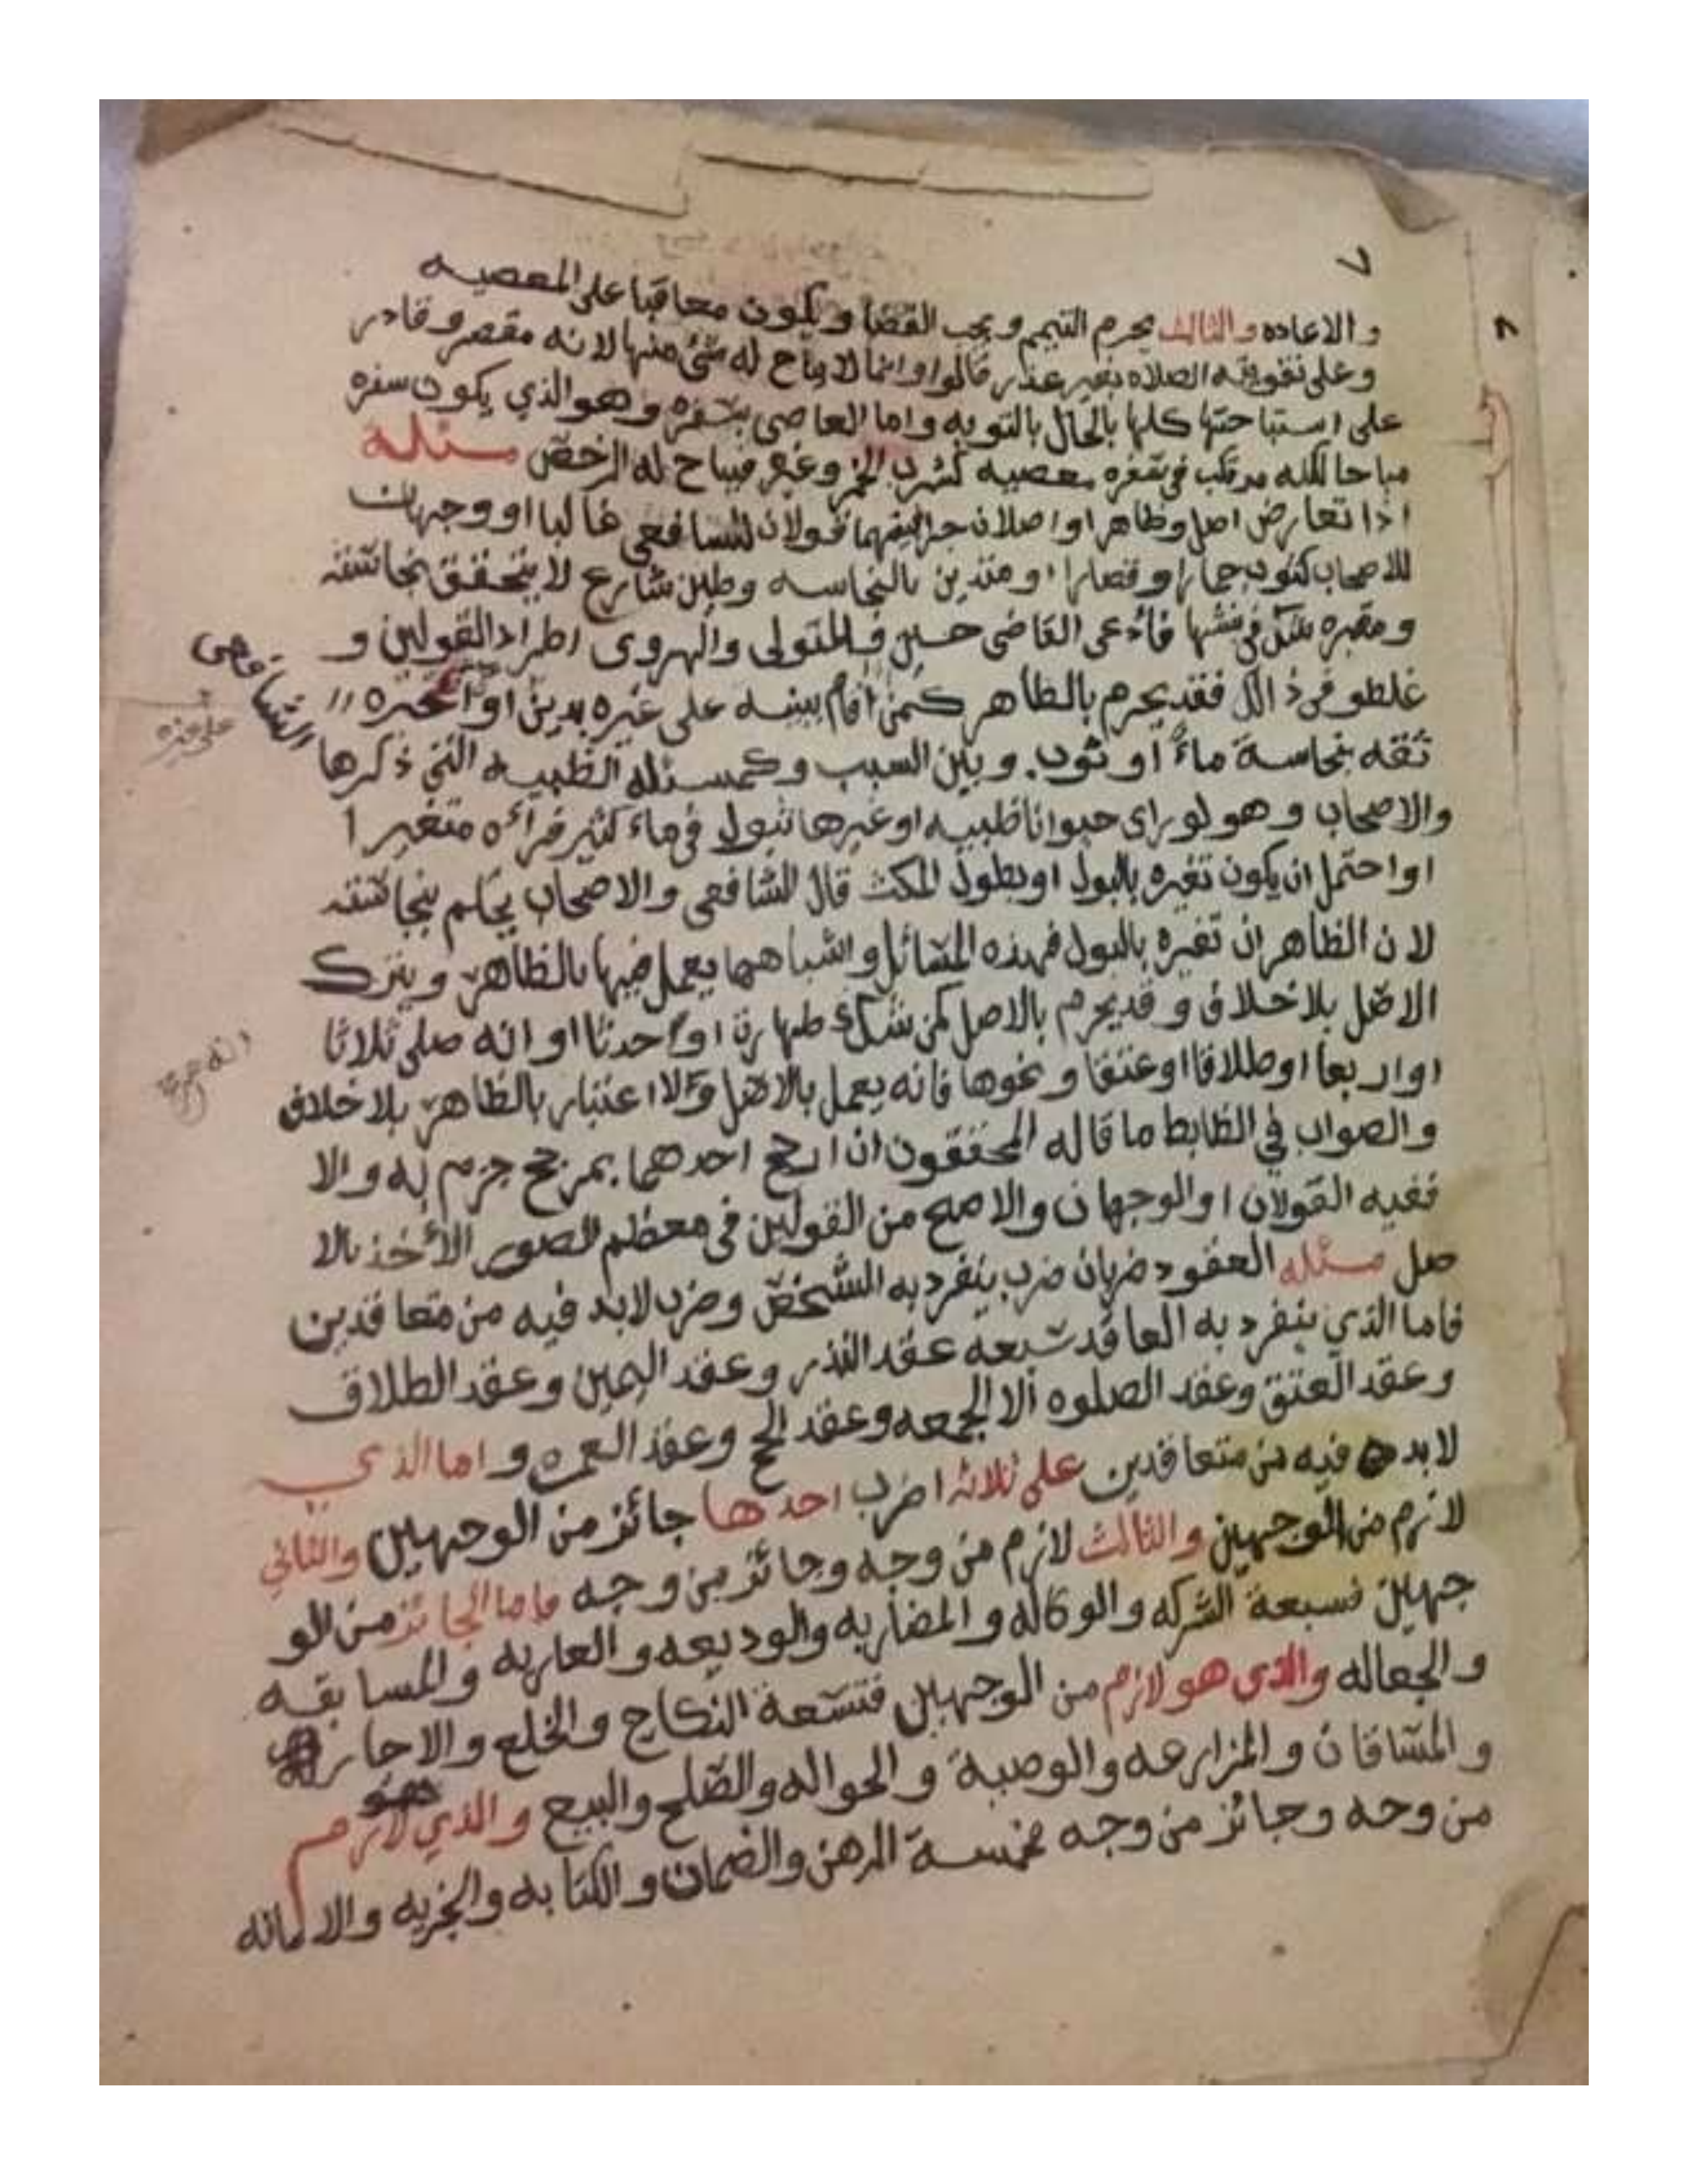 ٧
والاعاده والثالث يحرم التيمم ويجب القضا ويكون معاقبا على المعصيه
وعلى تفويته الصلاه بغير عذر قالوا وانما لا يباح له شئ منها لانه مقصر وقادر
على استباحتها كلها بالحال بالتوبه واما العاصى بسفره وهو الذي يكون سفره
مباحا لكنه مرتكب في سفره معصيه كشرب الخمر وغيره فيباح له الرخص مسئلة
اذا تعارض اصل وظاهر او اصلان جرا فيهما قولان للشافعى غالبا او وجهان
للاصحاب كثوب حمار او قصار او متدين بالنجاسه وطين شارع لا يتحقق نجاسته
ومقبره شك في نبشها فادعى القاضى حسين والمتولى والهروى اطراد القولين و
غلطو فى ذالك فقد يجرم بالظاهر كمن اقام بينه على غيره بدين او اخبره
ثقه بنجاسة ماءً او ثوب وبين السبب وكمسئله الظبيه التي ذكرها الشافعى
والاصحاب وهو لو راى حيوانا ظبيه او غيرها تبول في ماء كثير فرآه متغيرا
او احتمل ان يكون تغيره بالبول او بطول المكث قال الشافعى والاصحاب يحكم بنجاسته
لان الظاهر ان تغيره بالبول فهذه المسائل واشباهها يعمل فيها بالظاهر ويترك
الاصل بلا خلاف وقد يجرم بالاصل كمن شك طهارة او حدثا او انه صلى ثلاثا
او اربعا او طلاقا او عتقا ونحوها فانه يعمل بالاصل ولا اعتبار بالظاهر بلا خلاف
والصواب في الظابط ما قاله المحققون ان ارجح احدهما بمرجح جزم به والا
ففيه القولان او الوجهان والاصح من القولين فى معظم الصور الأخذ بالا
صل مسئله العقود ضربان ضرب ينفرد به الشخص وضرب لابد فيه من متعاقدين
فاما الذي ينفرد به العاقد سبعه عقد النذر وعقد اليمين وعقد الطلاق
وعقد العتق وعقد الصلوه الا الجمعه وعقد الحج وعقد العمره واما الذي
لابد فيه من متعاقدين على ثلاثه اضرب احدها جائز من الوجهين والثاني
لازم من الوجهين والثالث لازم من وجه وجائز من وجه فاما الجائز من الو
جهين فسبعة الشركه والوكاله والمضاربه والوديعه والعاريه والمسابقه
والجعاله والذى هو لازم من الوجهين فتسعة النكاح والخلع والاجاره
والمساقات والمزارعه والوصية والحواله والصلح والبيع والذي هو لازم
من وجه وجائز من وجه خمسة الرهن والضمان والكتابه والجزيه والامانه